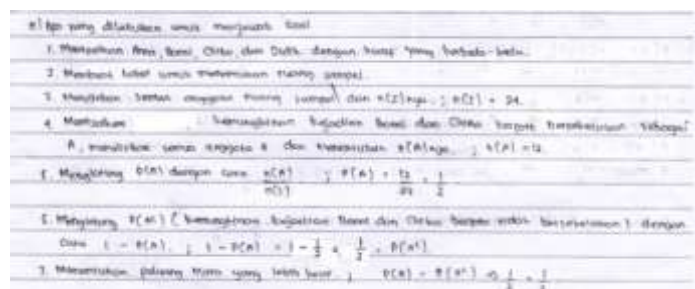 a) Apa yang dilakukan untuk menjawab soal
1. Memisalkan Anna, Boni, Cirko, dan Dutti dengan huruf yang berbeda-beda.
2. Membuat tabel untuk menentukan ruang sampel.
3. Menuliskan semua anggota ruang sampel dan n(S)nya. ; n(S) = 24.
4. Memisalkan kemungkinan kejadian Boni dan Cirko berpose bersebelahan sebagai
A, menuliskan semua anggota A dan menentukan n(A)nya. ; n(A) = 12
5. Menghitung P(A) dengan cara n(A)/n(S) ; P(A) = 12/24 = 1/2
6. Menghitung P(Aᶜ) (kemungkinan kejadian Boni dan Cirko berpose tidak bersebelahan) dengan
Cara 1 - P(A). ; 1 - P(A) = 1 - 1/2 = 1/2 = P(Aᶜ).
7. Menentukan peluang mana yang lebih besar ; P(A) = P(Aᶜ) ⇒ 1/2 = 1/2